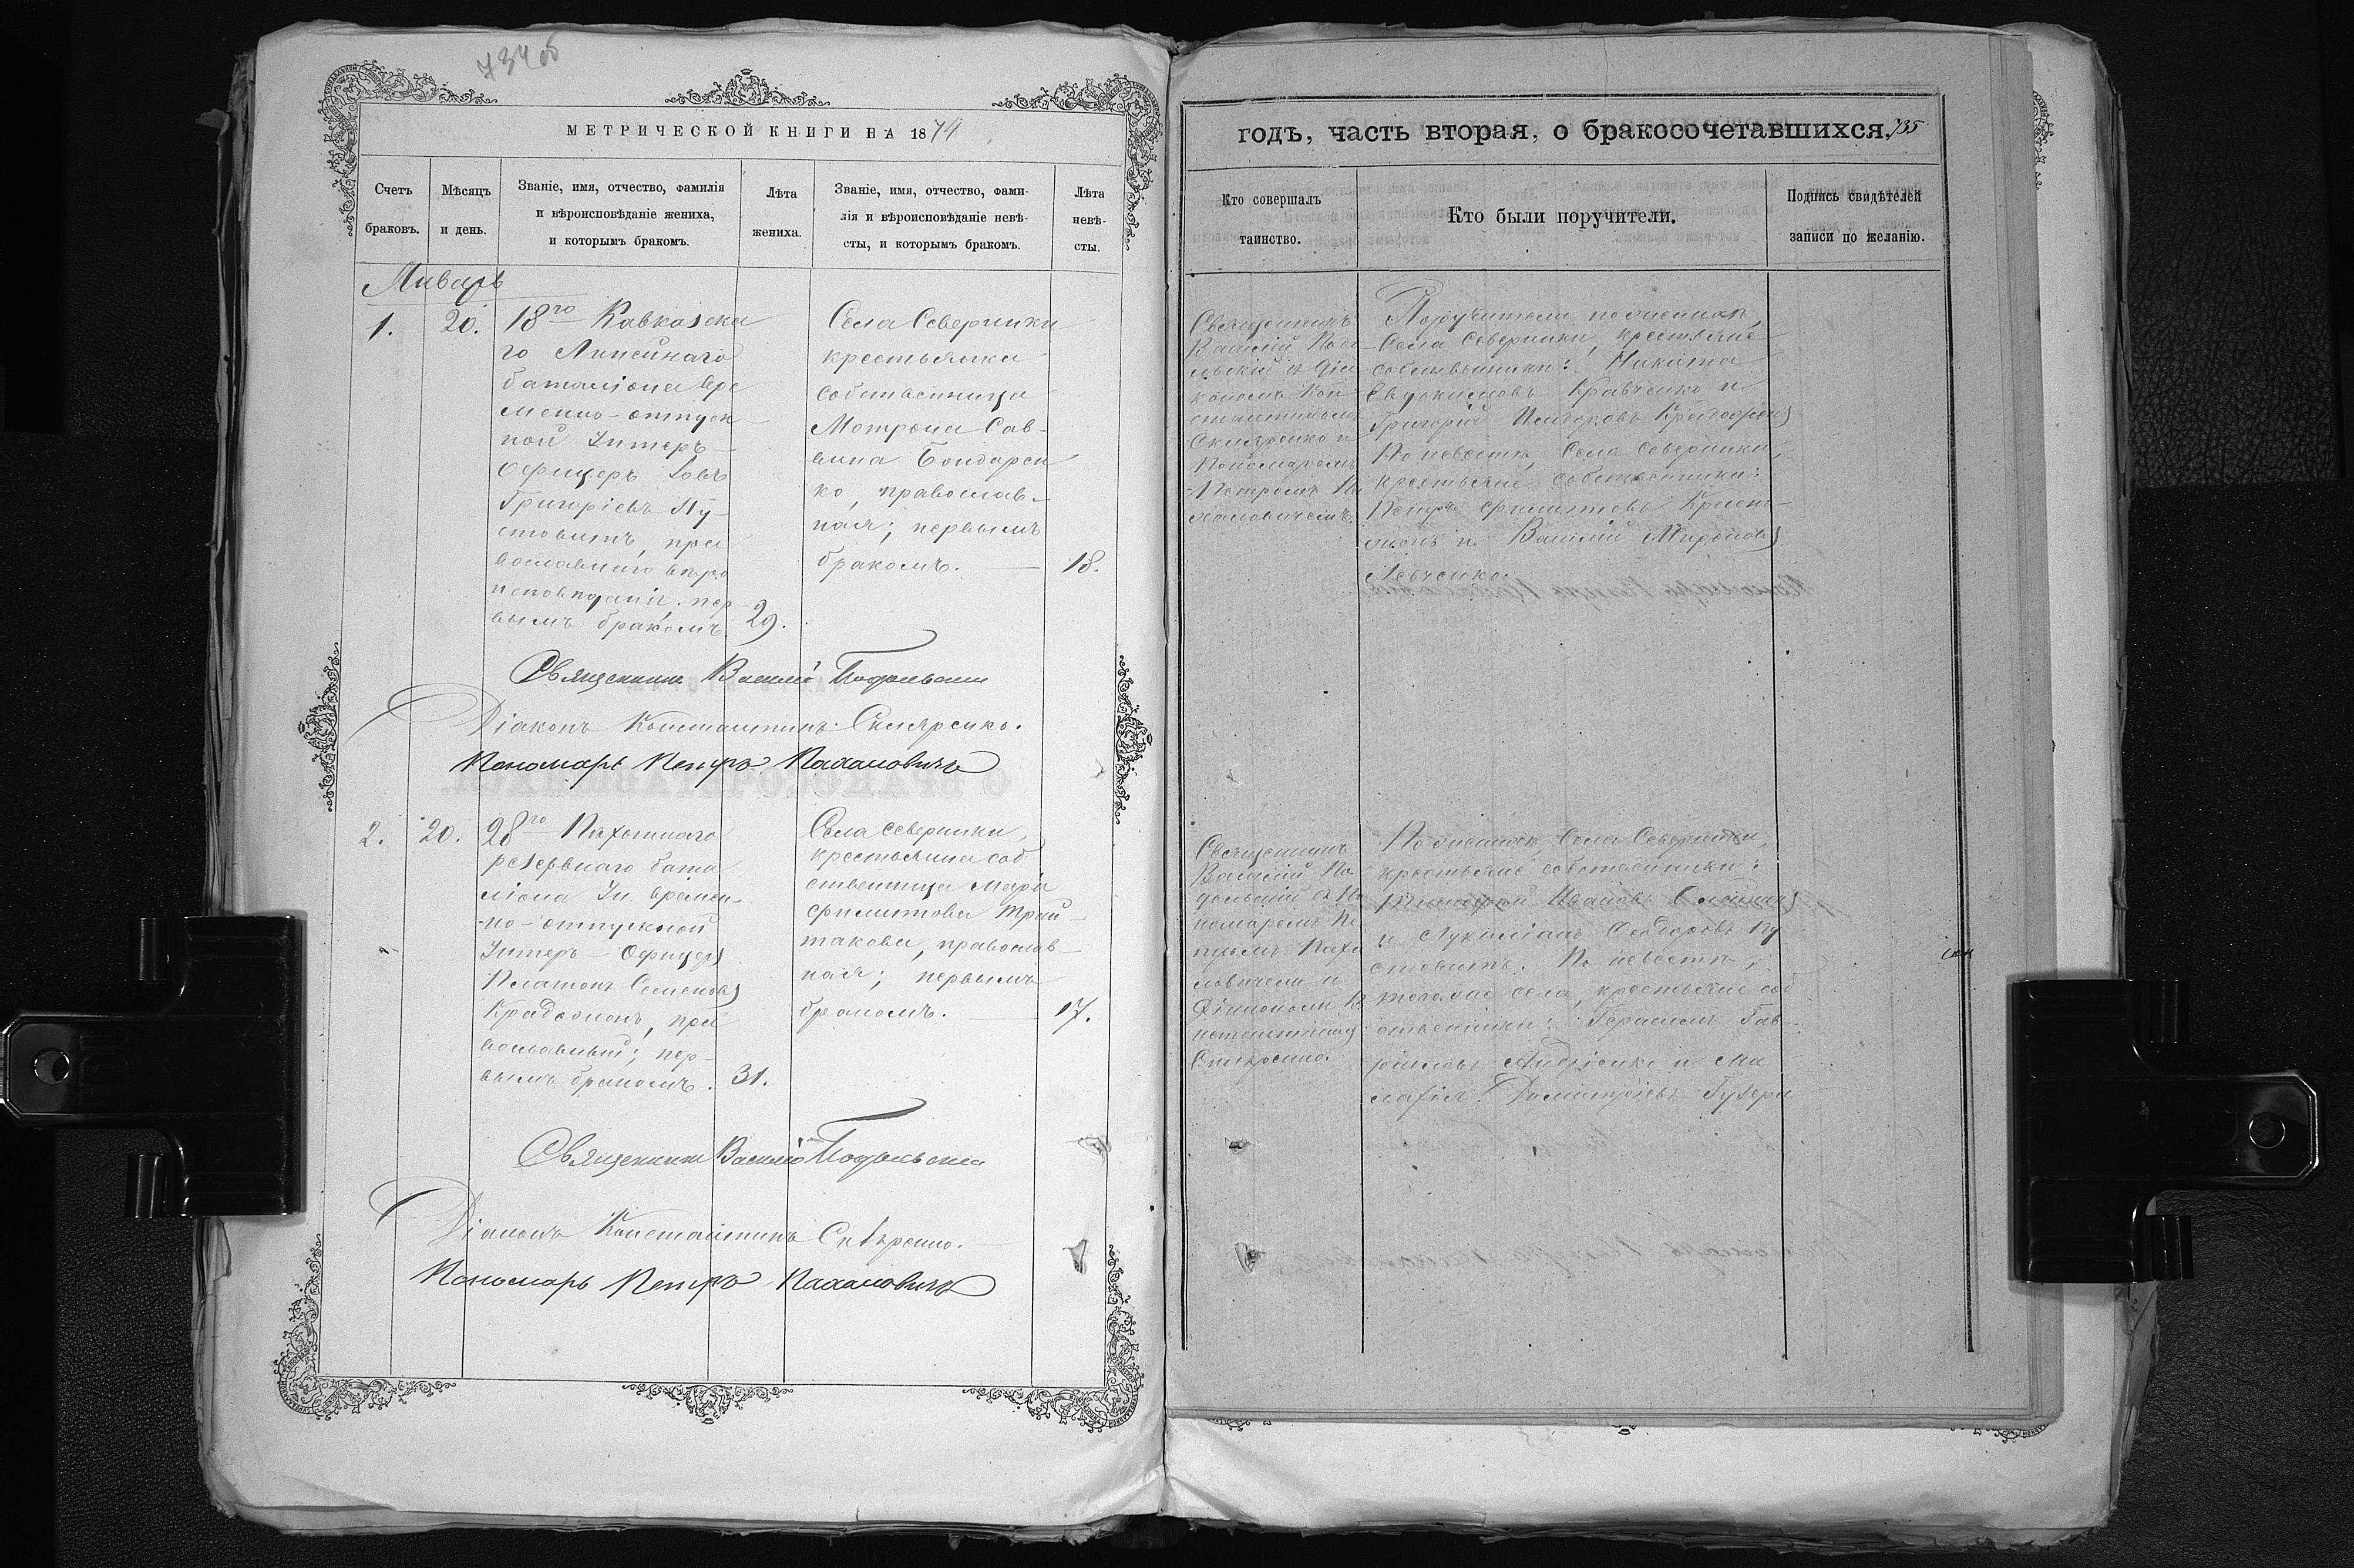 734 об
МЕТРИЧЕСКОЙ КНИГИ НА 1874
Счетъ браковъ.
Мѣсяцъ и день.
Званіе, имя, отчество, фамилія
и вѣроисповѣданіе жениха,
и которымъ бракомъ.
Лѣта
жениха.
Званіе, имя, отчество, фами-
лія и вѣроисповѣданіе невѣ-
сты, и которымъ бракомъ.
Лѣта
невѣ-
сты.
Январь
1.
20.
18го Кавказска
го Линейнаго
баталіона вре
менно-отпуск-
ной Унтеръ-
Офицеръ Іовъ
Григоріевъ Пу-
стовитъ, пра
вославнаго вѣро
исповѣданія; пер-
вымъ бракомъ.
29.
Села Северинки
крестьянка
собственница
Матрона Сав-
вина Бондарен
ко, православ-
ная; первымъ
бракомъ.
18.
Священникъ Василій Подольскій
Діаконъ Константинъ Скляренко.
Пономарь Петръ Пахаловичъ
2.
20.
28го Пѣхотнаго
резервнаго бата
ліона Ун. времен
но-отпускной
Унтеръ-Офицеръ
Платонъ Семеновъ
православный; пер-
вымъ бракомъ.
31.
Села Северинки,
крестьянка соб
ственница Марія
Филиппова
православ-
ная; первымъ
бракомъ.
17.
Священникъ Василій Подольскій
Діаконъ Константинъ Скляренко.
Пономарь Петръ Пахаловичъ
годъ, часть вторая, о бракосочетавшихся.
735
Кто совершалъ
таинство.
Кто были поручители.
Подпись свидѣтелей
записи по желанію.
Священникъ
Василій Подо
льскій съ Діа
кономъ Кон-
стантиномъ
Скляренко и
Пономаремъ
Петромъ Па
халовичемъ.
Поручители по женихѣ,
Села Северинки, крестьяне
собственники: Никита
Евдокимовъ Кравченко и
Григорій
По невестѣ, Села Северинки,
крестьяне собственники:
Петръ Филипповъ
и Василій Мироновъ
Левченко.
Священникъ
Василій По
дольскій съ По
номаремъ Пе
тромъ Паха
ловичемъ и
Діакономъ Ко
нстантиномъ
Скляренко.
По женихѣ, Села Северинки,
крестьяне собственники:
Ивановъ
и Лукіянъ Феодоровъ Пу
стовитъ. По невестѣ,
тогоже села, крестьяне соб
ственники: Герасимъ Гав-
риловъ Андріенко и Ма
лафій Димитріевъ